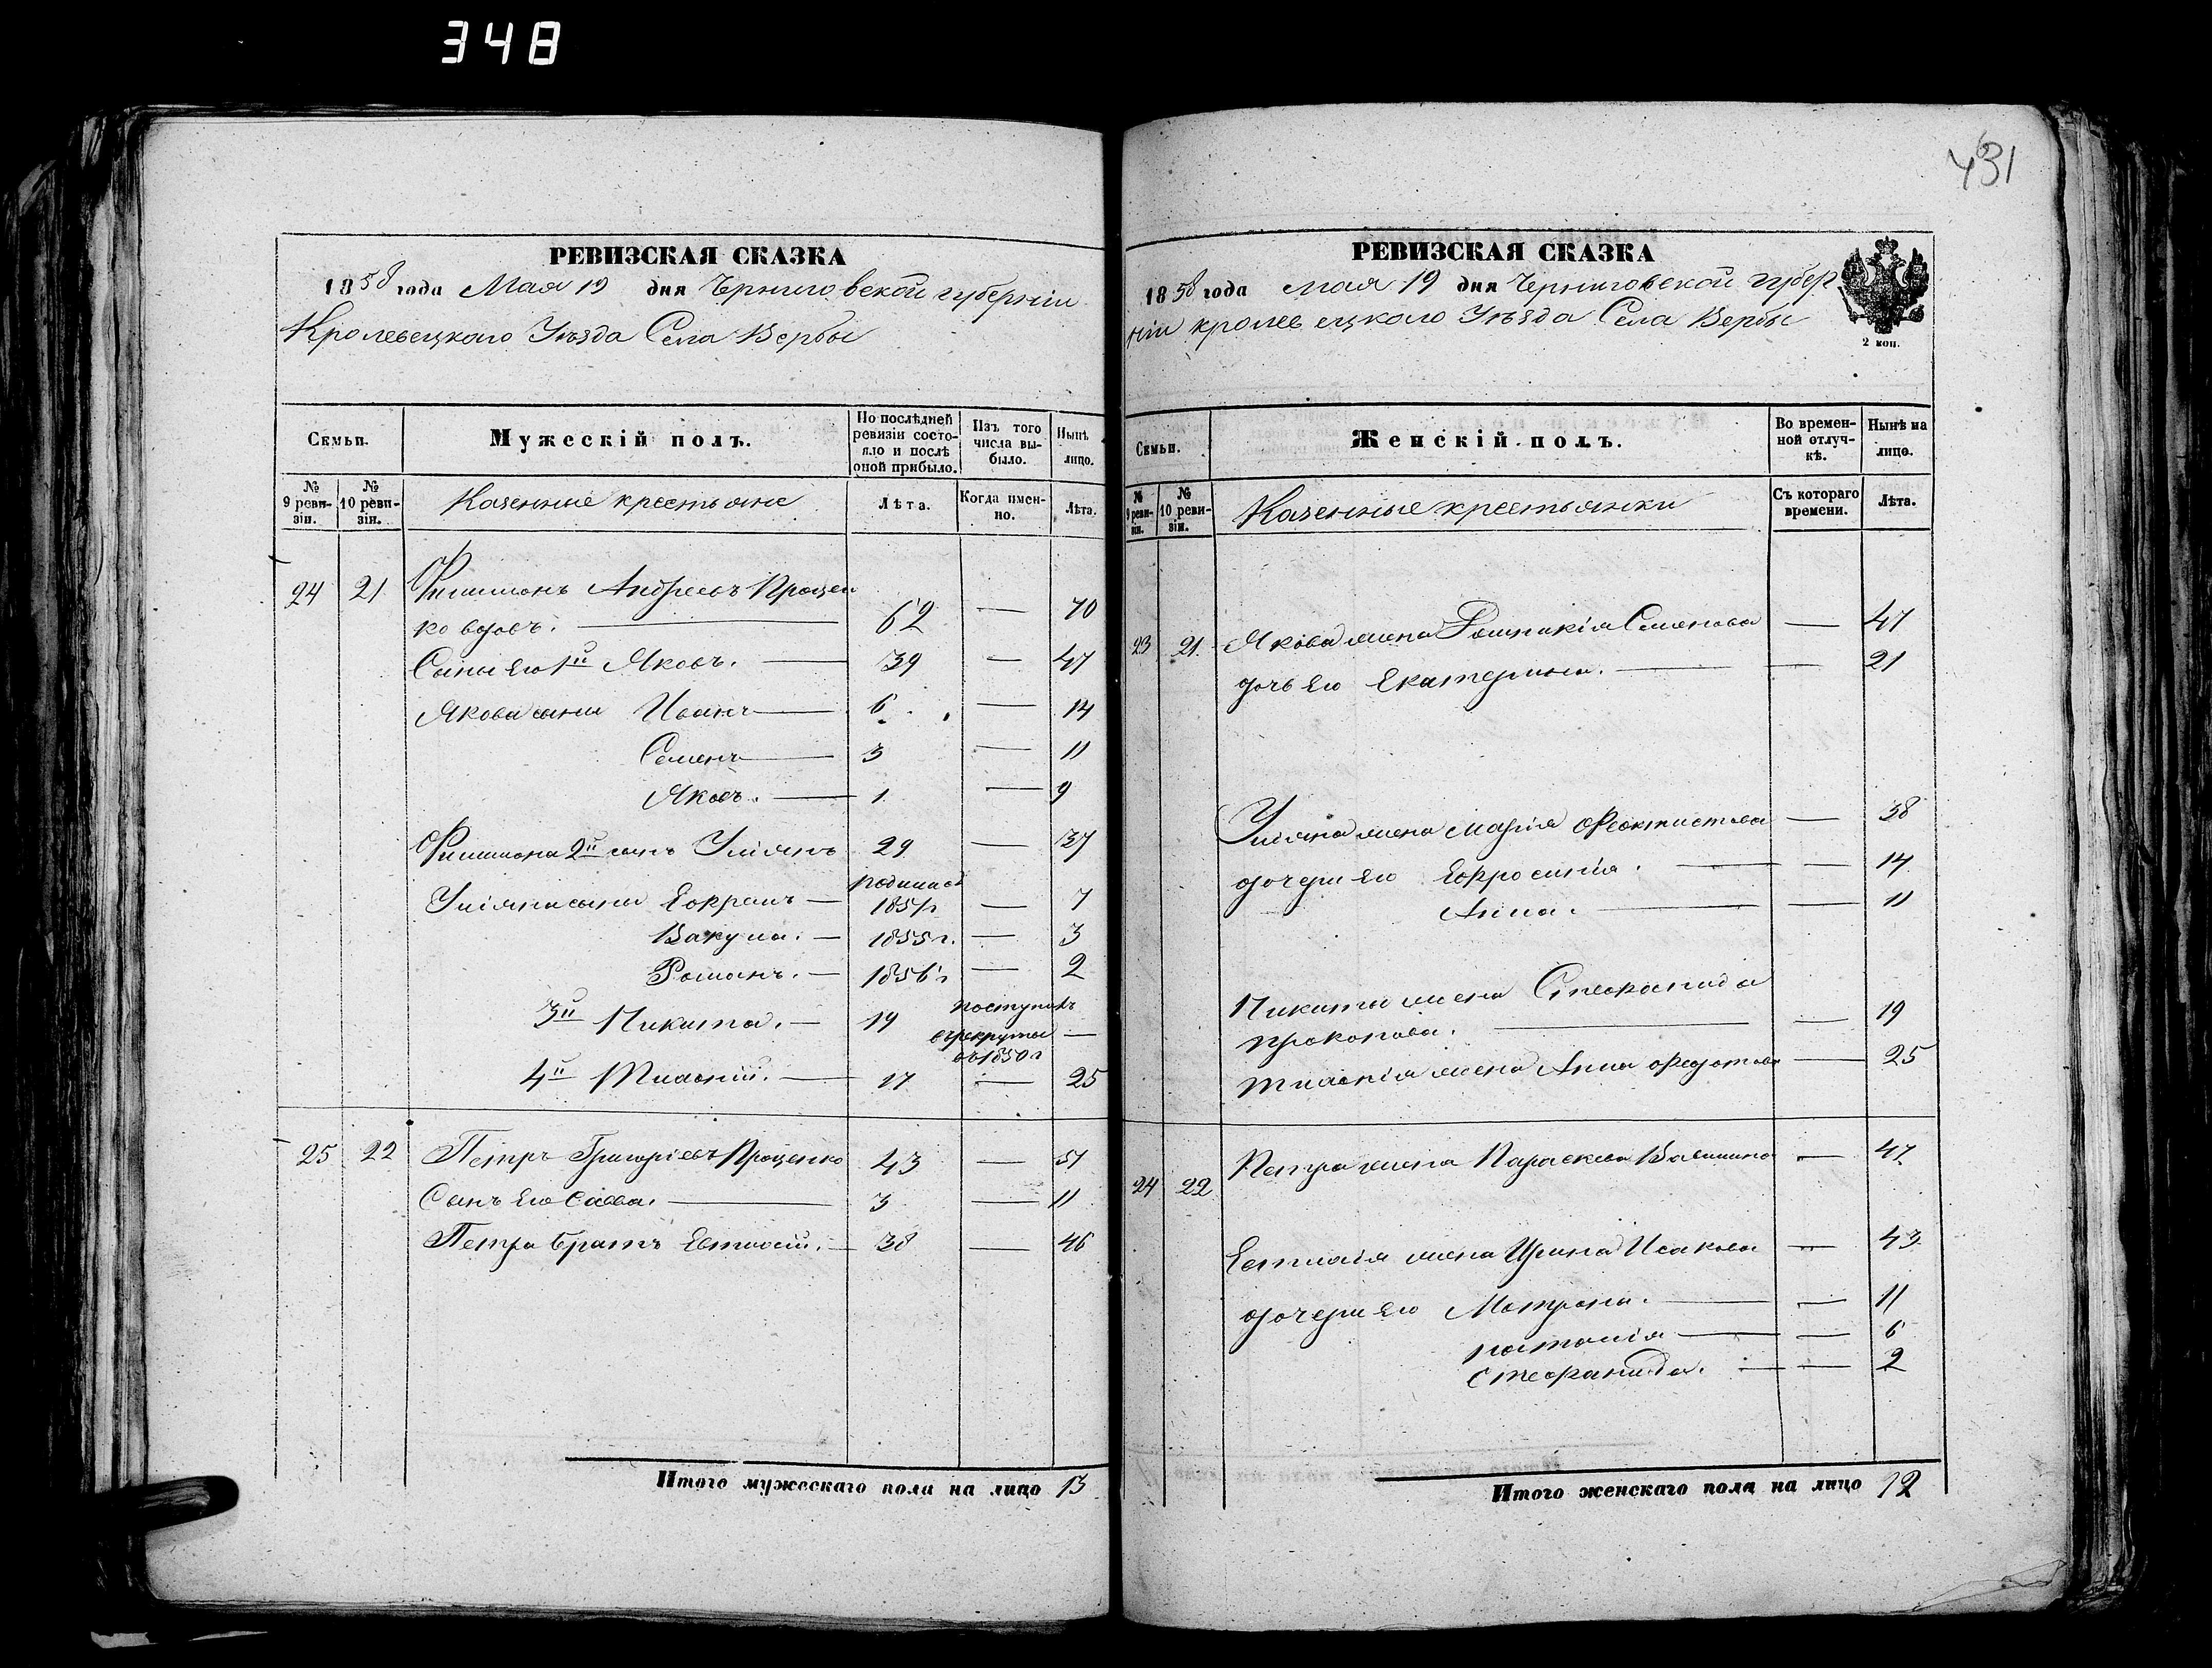 348
РЕВИЗСКАЯ СКАЗКА
1858 года Мая 19 дня Черниговской губерніи
Кролевецкаго Уѣзда Села Вербы
Семьи.
Мужескій полъ.
По послѣдней ревизіи состояло и послѣ оной прибыло.
Изъ того числа выбыло.
Нынѣ лицо.
№ 9 ревизіи.
№ 10 ревизіи.
Казенные крестьяне
Лѣта.
Когда именно.
Лѣта.
24 21 Филимонъ Андреевъ Процен
ко вдовъ. 62 — 70
Сыны его 1й Яковъ. 39 — 47
Якова сыны Иванъ 6 — 14
Семенъ 3 — 11
Яковъ. 1 — 9
Филимона 2й сынъ Уліянъ 29 — 37
родился
Уліяна сыны Ефремъ 1851г — 7
Вакула. 1855г. — 3
Романъ. 1856г — 2
3й Никита. 19 поступилъ
въ рекруты —
въ 1850г
4й 17 — 25
25 22 Петръ Григоріевъ Проценко 43 — 51
Сынъ его Савва. 3 — 11
Петра братъ Евтихій. 38 — 46
Итого мужескаго пола на лицо 13
431
РЕВИЗСКАЯ СКАЗКА
1858 года мая 19 дня Черниговской губер
ніи кролевецкаго Уѣзда Села Вербы
2 коп.
Семьи.
Женскій полъ.
Во временной отлучкѣ.
Нынѣ на лицо.
№ 9 ревизіи.
№ 10 ревизіи.
Казенные крестьянки
Съ котораго времени.
Лѣта.
23 21 Якова жена Семенова — 47
дочь его Екатерина. — 21
Уліяна жена Марія Феоктистова — 38
дочери его Ефросинія. — 14
Анна. — 11
Никиты жена Стефанида
Прокопова. — 19
жена Анна Федотова — 25
24 22 Петра жена Параскева — 47
Евтихія жена Ирина Исакова — 43
дочери его Матрона. — 11
наталія — 6
стефанида. — 2
Итого женскаго пола на лицо 12